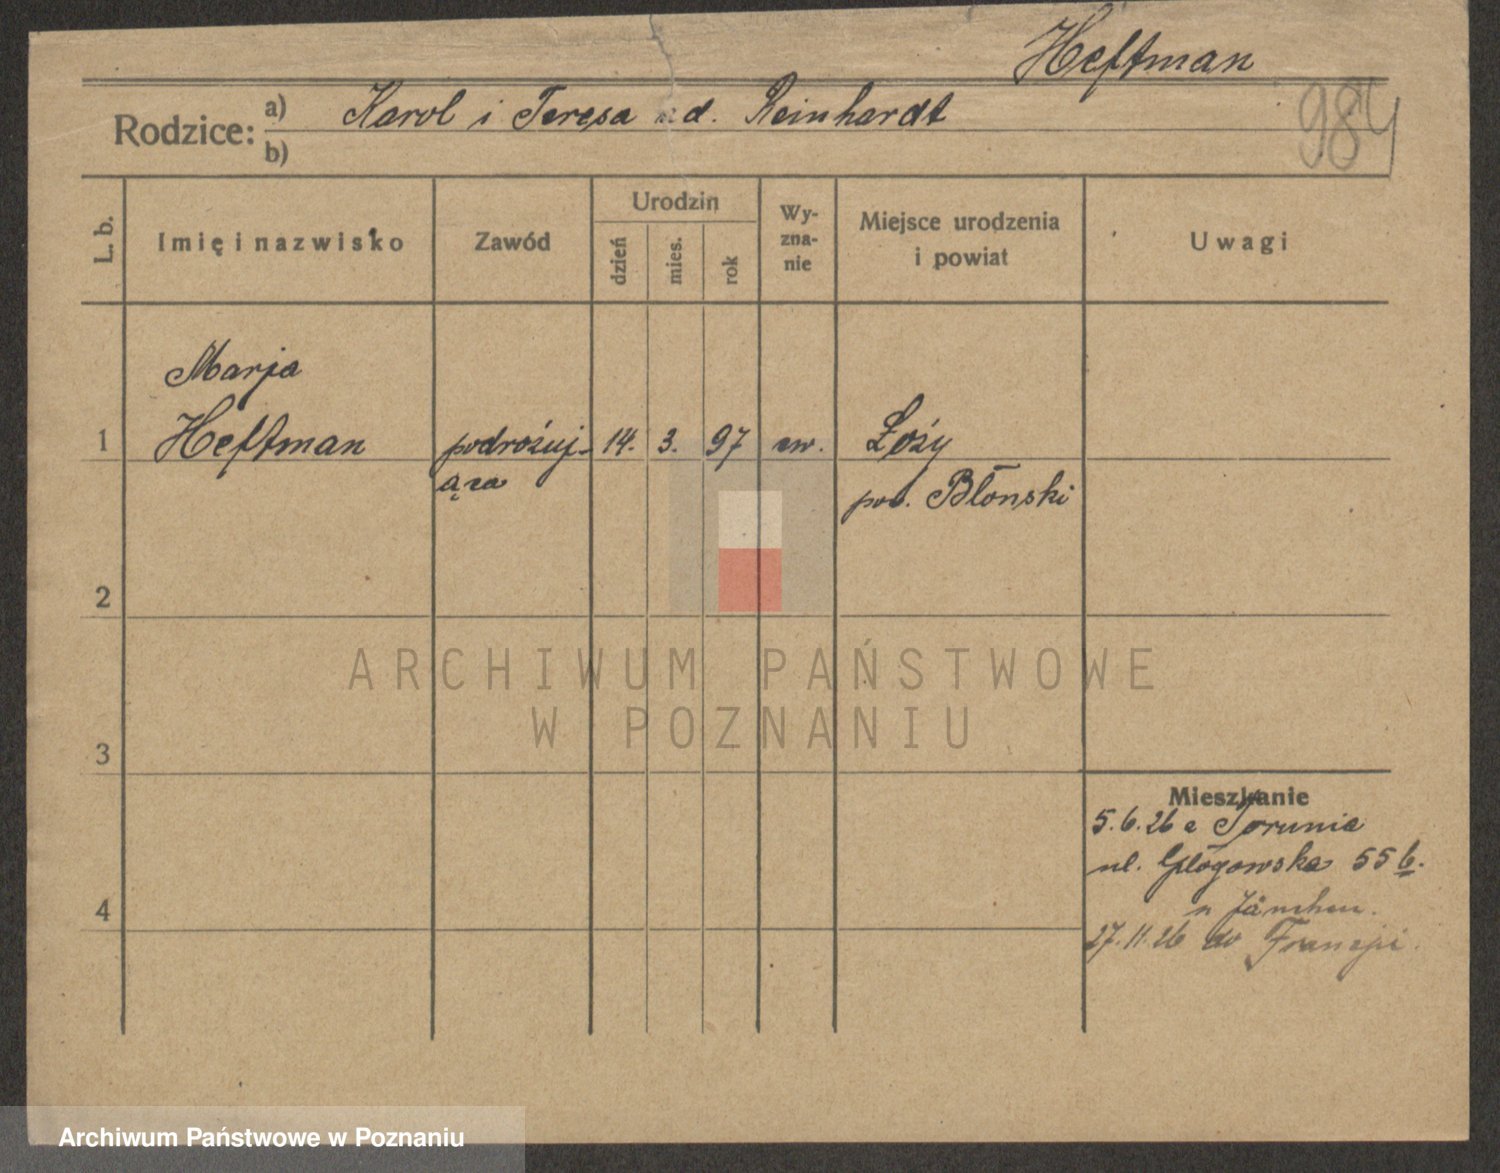 Heftman
984
Rodzice: a) Karol i Teresa zd. Reinhardt
b)
L. b.
Imię i nazwisko
Zawód
Urodzin
dzień
mies.
rok
Wy-
zna-
nie
Miejsce urodzenia
i powiat
Uwagi
Marja
1 Heftman podrożuj- 14. 3. 97 ew. Łoźy
ąca pow. Błonski
2
ARCHIWUM PAŃSTWOWE
W POZNANIU
3
Mieszkanie
5.6.26 z Torunia
ul. Głogowska 55 b.
4
u Jänchen.
27.11.26 do Francji.
Archiwum Państwowe w Poznaniu